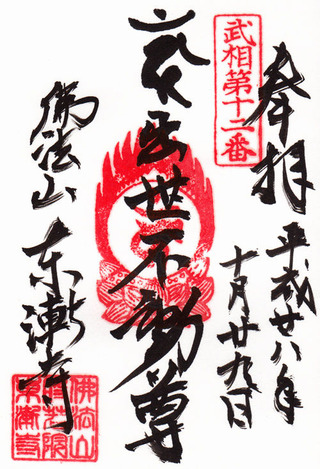 奉拝
武相第十二番
平成廿八年
十月廿九日
出世不動尊
佛法山
東漸寺
佛法山
東漸寺